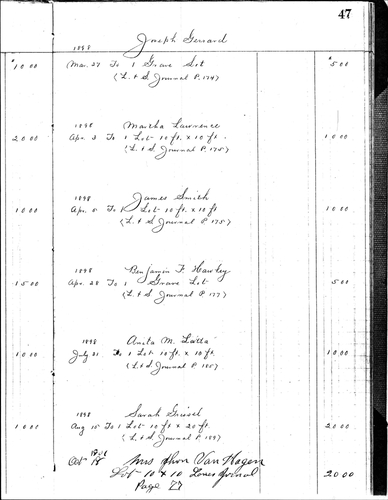 47
1898 Joseph Gerrard
$10 00 Mar. 27 To 1 Grave Lot $5 00
(L. & S. Journal P. 174)
1898 Martha Lawrence
20 00 Apr. 3 To 1 Lot 10 ft. x 10 ft. 10 00
(L. & S. Journal P. 175)
1898 James Smith
10 00 Apr. 5 To 1 Lot 10 ft. x 10 ft. 10 00
(L. & S. Journal P. 175)
1898 Benjamin F. Hawley
15 00 Apr. 28 To 1 Grave Lot 5 00
(L. & S. Journal P. 177)
1898 Anita M. Latta
10 00 July 21 To 1 Lot 10 ft. x 10 ft. 10 00
(L & S. Journal P. 185)
1898 Sarah
10 00 Aug 15 To 1 Lot 10 ft x 20 ft. 20 00
(L. & S. Journal P. 189)
Oct 18 Mrs Van Hagen
Lot 10 x 10 Journal
Page 27 20 00